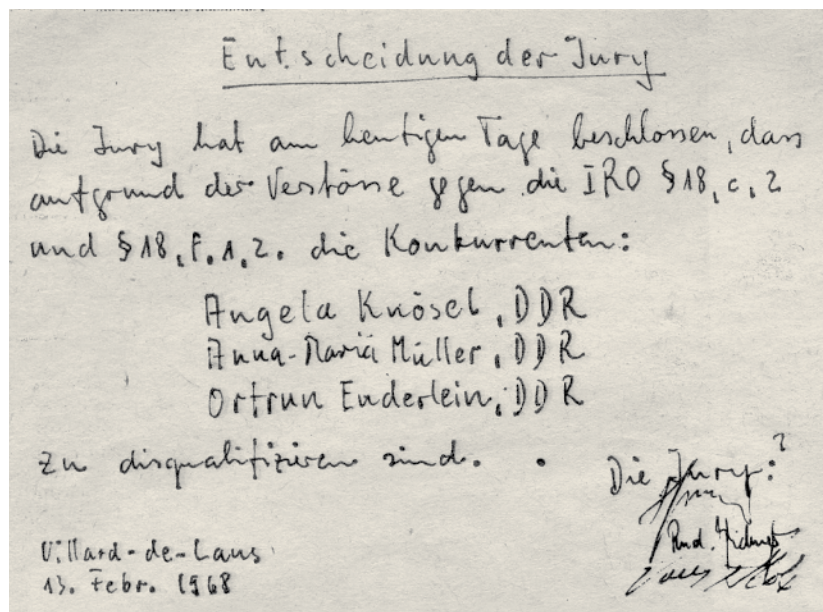 Entscheidung der Jury
Die Jury hat am heutigen Tage beschlossen, dass
aufgrund der Verstösse gegen die IRO §18, c, 2
und §18, f. 1, 2. die Konkurrenten:
Angela Knösel, DDR
Anna-Maria Müller, DDR
Ortrun Enderlein, DDR
zu disqualifizieren sind.
Die Jury:
Rud.
Villard-de-Lans
13. Febr. 1968